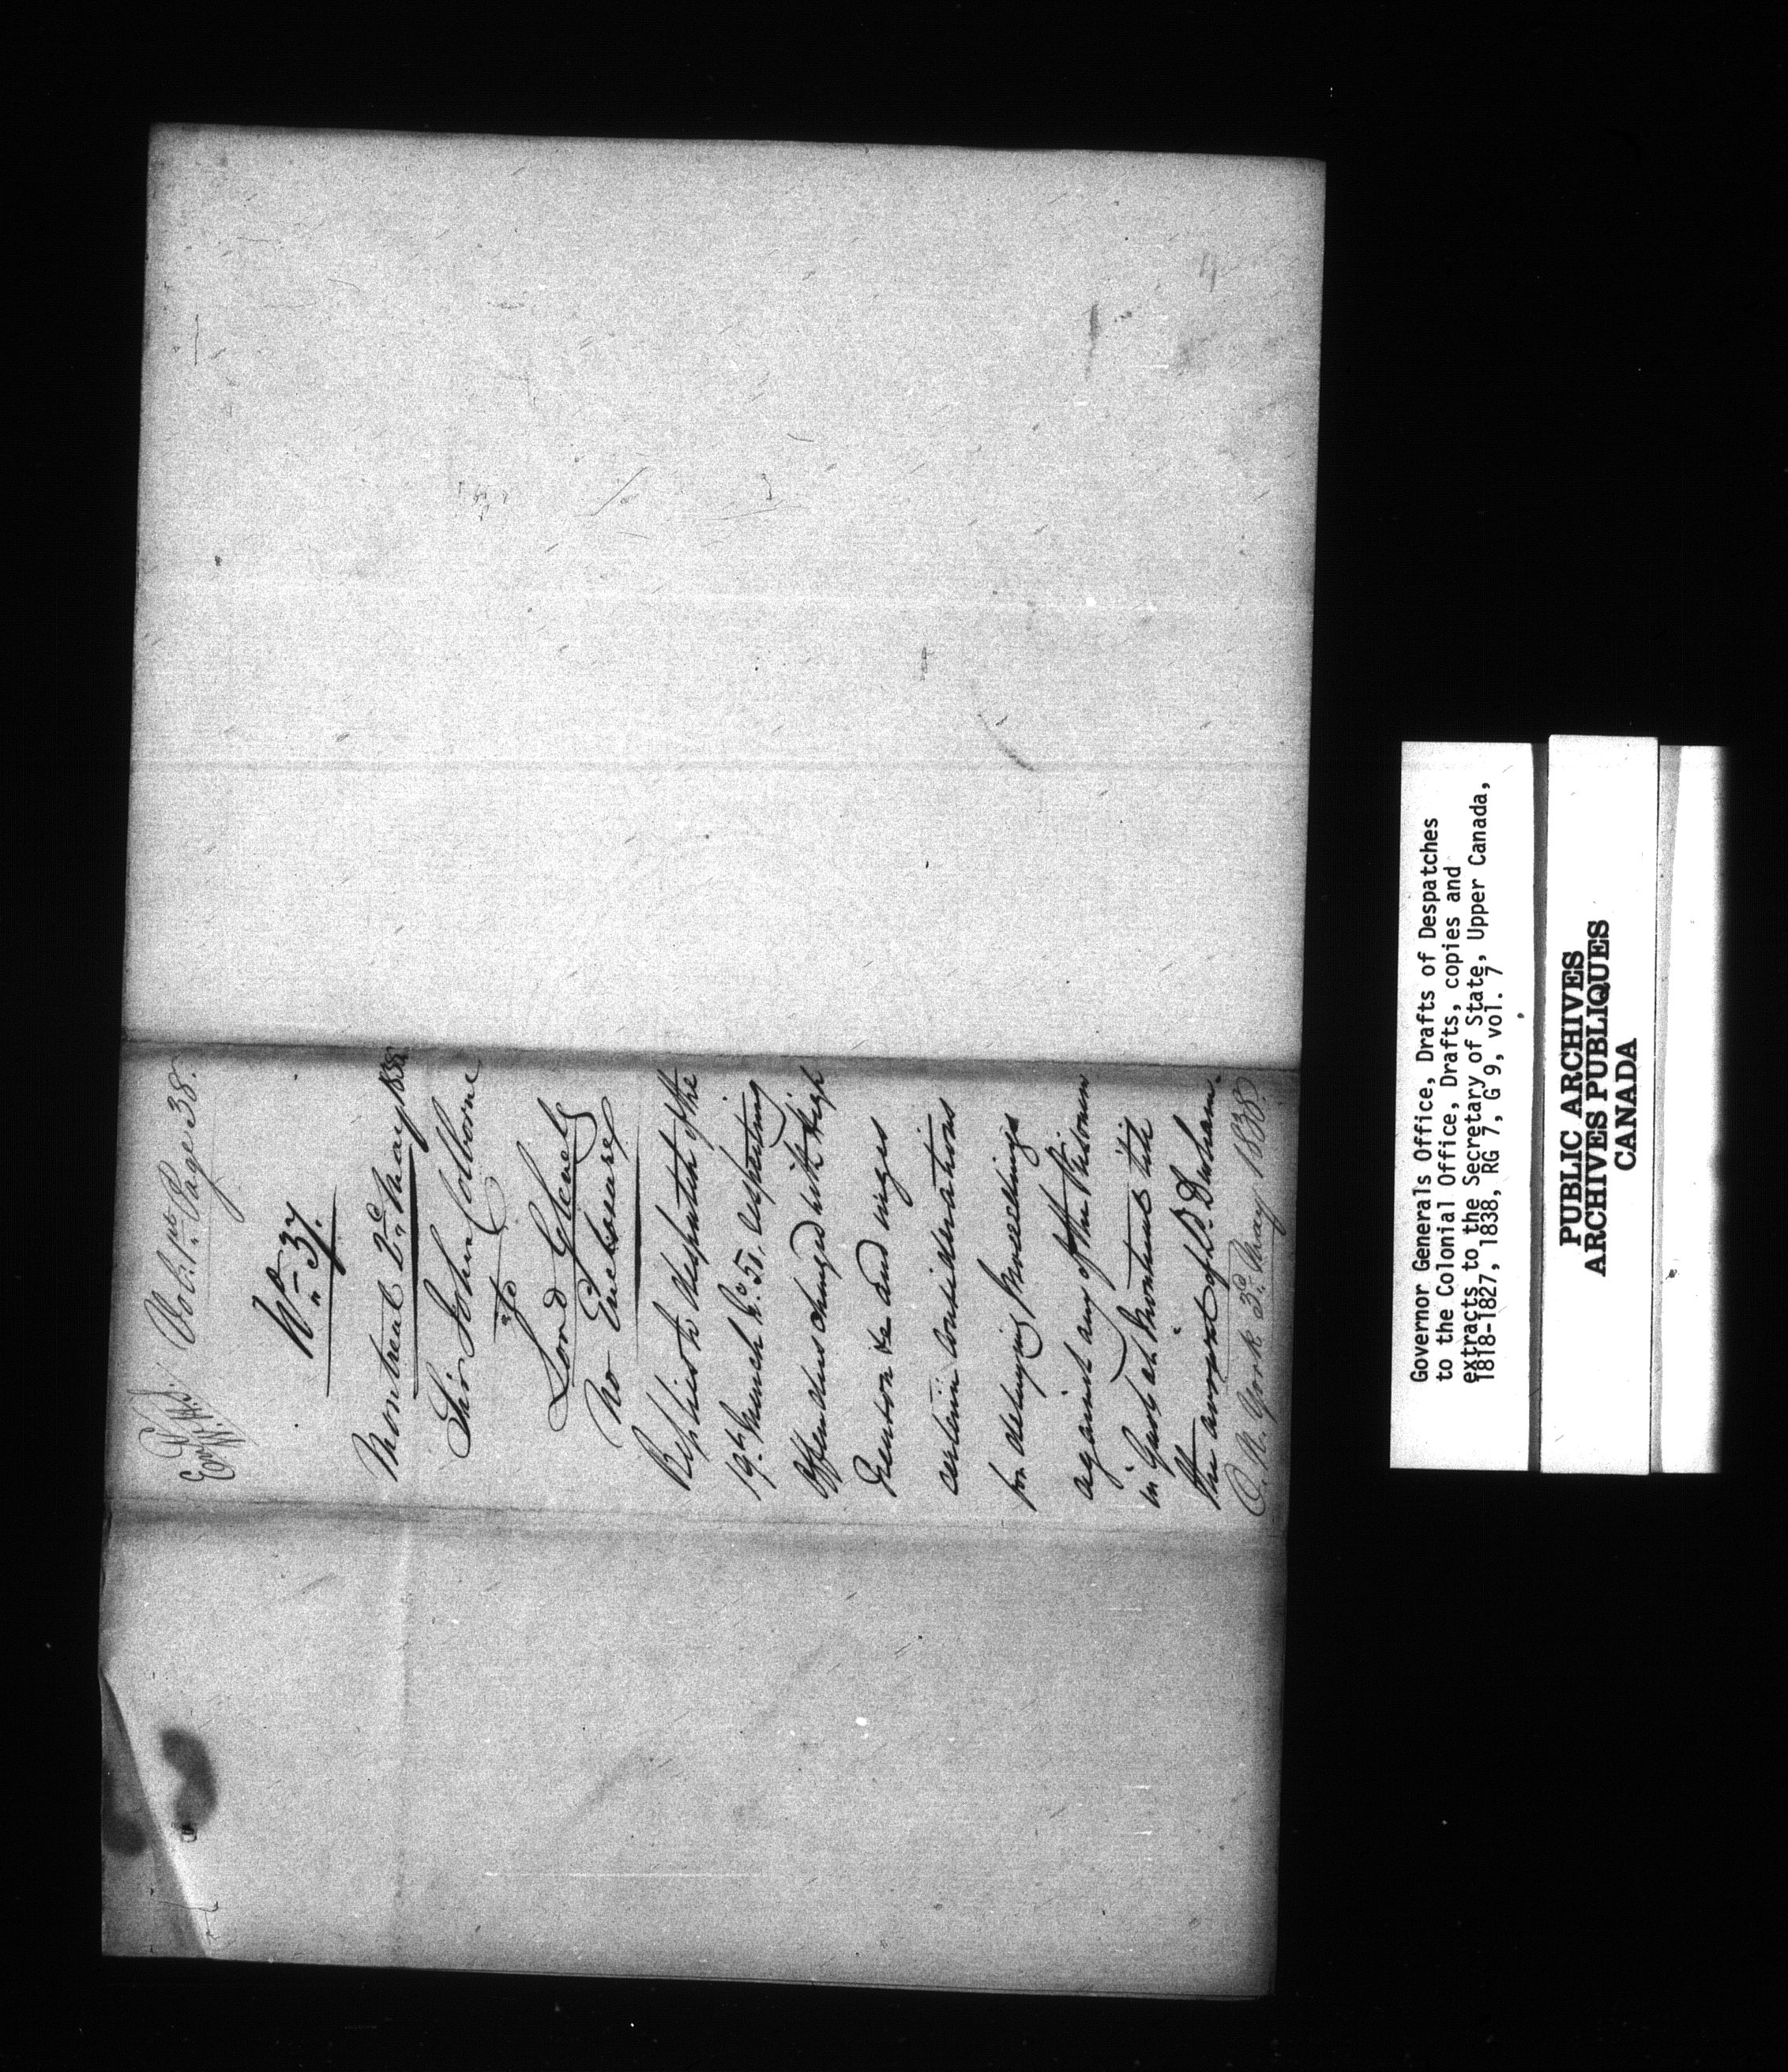 Vol. 1st Page 38.
No. 37.
Montreal 2d. May 1838
Sir John Colborne
to
Lord Glenelg
No Enclosure
Replies to despatch of the
19th. March No. 51, respecting
Offenders charged with High
Treason &c and urges
certain considerations
for delaying Proceedings
against any of the Prisoners
in Gaol at Montreal till
the arrival of Ld. Durham.
N. York 3d. May 1838.
Governor Generals Office, Drafts of Despatches
to the Colonial Office, Drafts, copies and
extracts to the Secretary of State, Upper Canada,
1818-1827, 1838, RG 7, G 9, vol. 7
PUBLIC ARCHIVES
ARCHIVES PUBLIQUES
CANADA